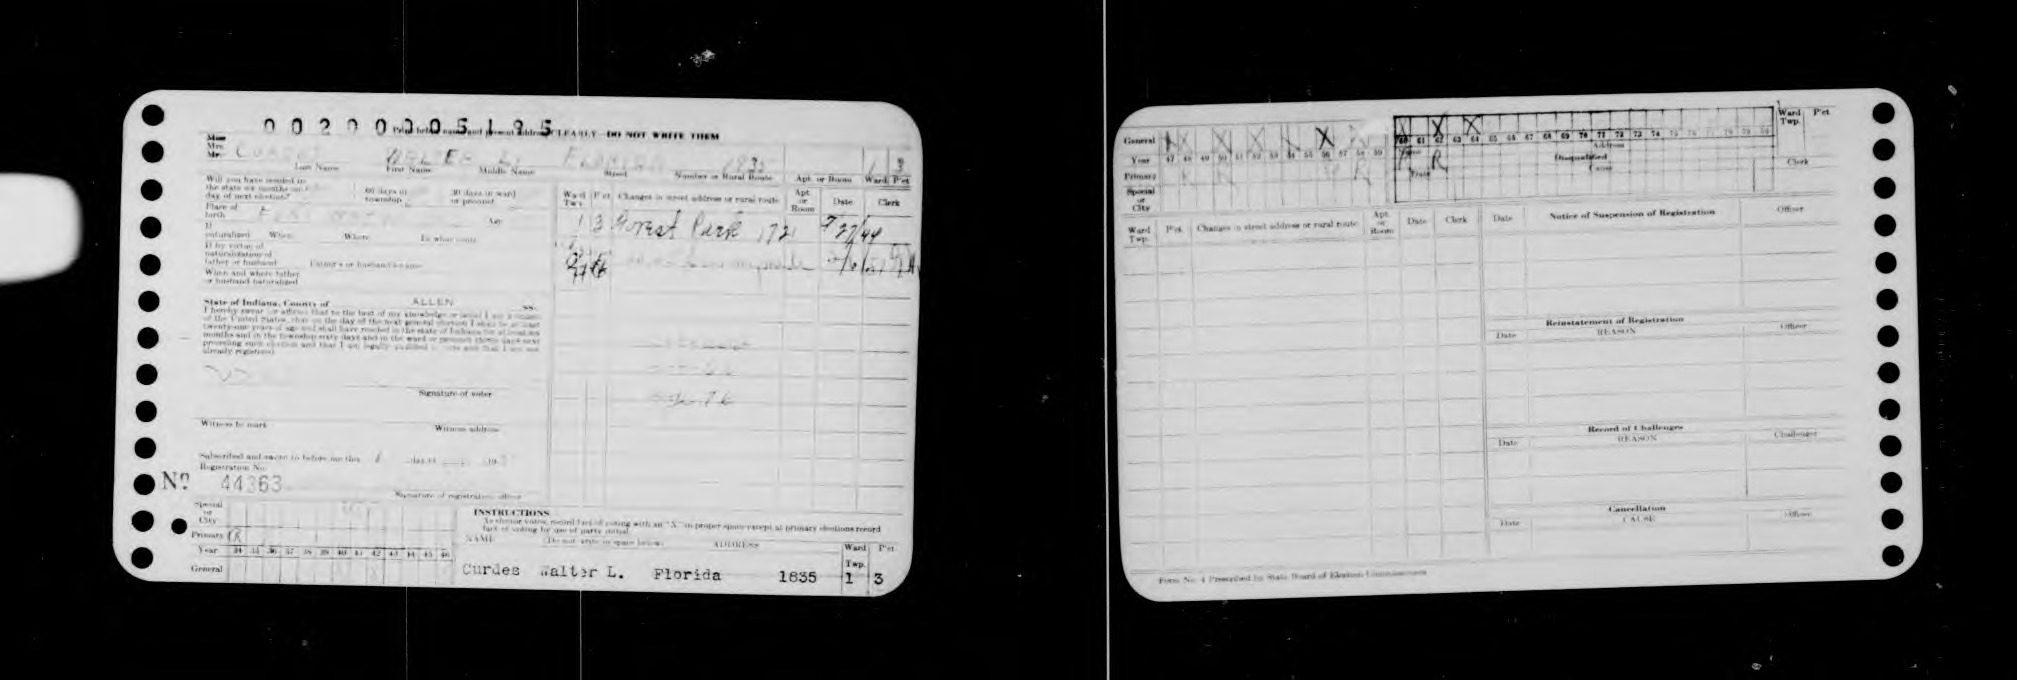 00200005125
Print below name and present address CLEARLY—DO NOT WRITE THEM
Miss
Mrs.
Mr. CURDES WALTER L. FLORIDA 1835 1 3
Last Name First Name Middle Name Street Number or Rural Route Apt. or Room Ward P'ct
Will you have resided in
the state six months on
day of next election?
60 days in
township
30 days in ward
or precinct
Place of
birth FORT WAYNE Age
If
naturalized When Where In what court
If by virtue of
naturalization of
father or husband Father's or husband's name
When and where father
or husband naturalized
State of Indiana, County of ALLEN SS.
I hereby swear (or affirm) that to the best of my knowledge or belief I am a citizen
of the United States, that on the day of the next general election I shall be at least
twenty-one years of age and shall have resided in the state of Indiana for at least six
months and in the township sixty days and in the ward or precinct thirty days next
preceding such election and that I am legally qualified to vote and that I am not
already registered.
Signature of voter
Witness to mark Witness address
Subscribed and sworn to before me this day of 193
Registration No.
Nº 44363
Signature of registration officer
Ward Twp. P'ct Changes in street address or rural route Apt. or Room Date Clerk
1 3 Forest Park 1721 7 27/44
Special
or
City
Primary R
Year 34 35 36 37 38 39 40 41 42 43 44 45 46
General
INSTRUCTIONS
As elector votes, record fact of voting with an "X" in proper space except at primary elections record
fact of voting by use of party initial.
NAME Do not write in space below ADDRESS Ward Twp. P'ct
Curdes Walter L. Florida 1835 1 3
General X X X X X X X X X X
Year 47 48 49 50 51 52 53 54 55 56 57 58 59 60 61 62 63 64 65 66 67 68 69 70 71 72 73 74 75 76 77 78 79 80
Primary R R R R
Special
or
City
Name
Address
Date
Disqualified
Cause
Ward
Twp. P'ct
Clerk
Ward
Twp. P'ct Changes in street address or rural route Apt. or Room Date Clerk
Date Notice of Suspension of Registration Officer
Reinstatement of Registration
Date REASON Officer
Record of Challenges
Date REASON Challenger
Cancellation
Date CAUSE Officer
Form No. 4 Prescribed by State Board of Election Commissioners